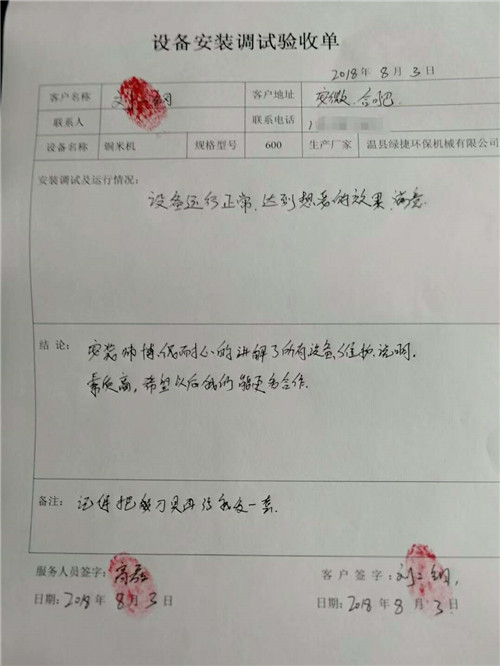 设备安装调试验收单
2018年 8月 3日
客户名称 刘 钢 客户地址 安徽.合肥
联系人 联系电话 1
设备名称 铜米机 规格型号 600 生产厂家 温县绿捷环保机械有限公司
安装调试及运行情况:
设备运行正常.达到想要的效果,满意
结 论: 安装师博很耐心的讲解了所有设备、维护,说明.
素质高,希望以后我们能更多合作.
备注: 记得把 刀具再给我发一套.
服务人员签字: 高磊 客 户 签 字: 刘 钢
日期: 2018年 8月3日 日期: 2018年 8月3日